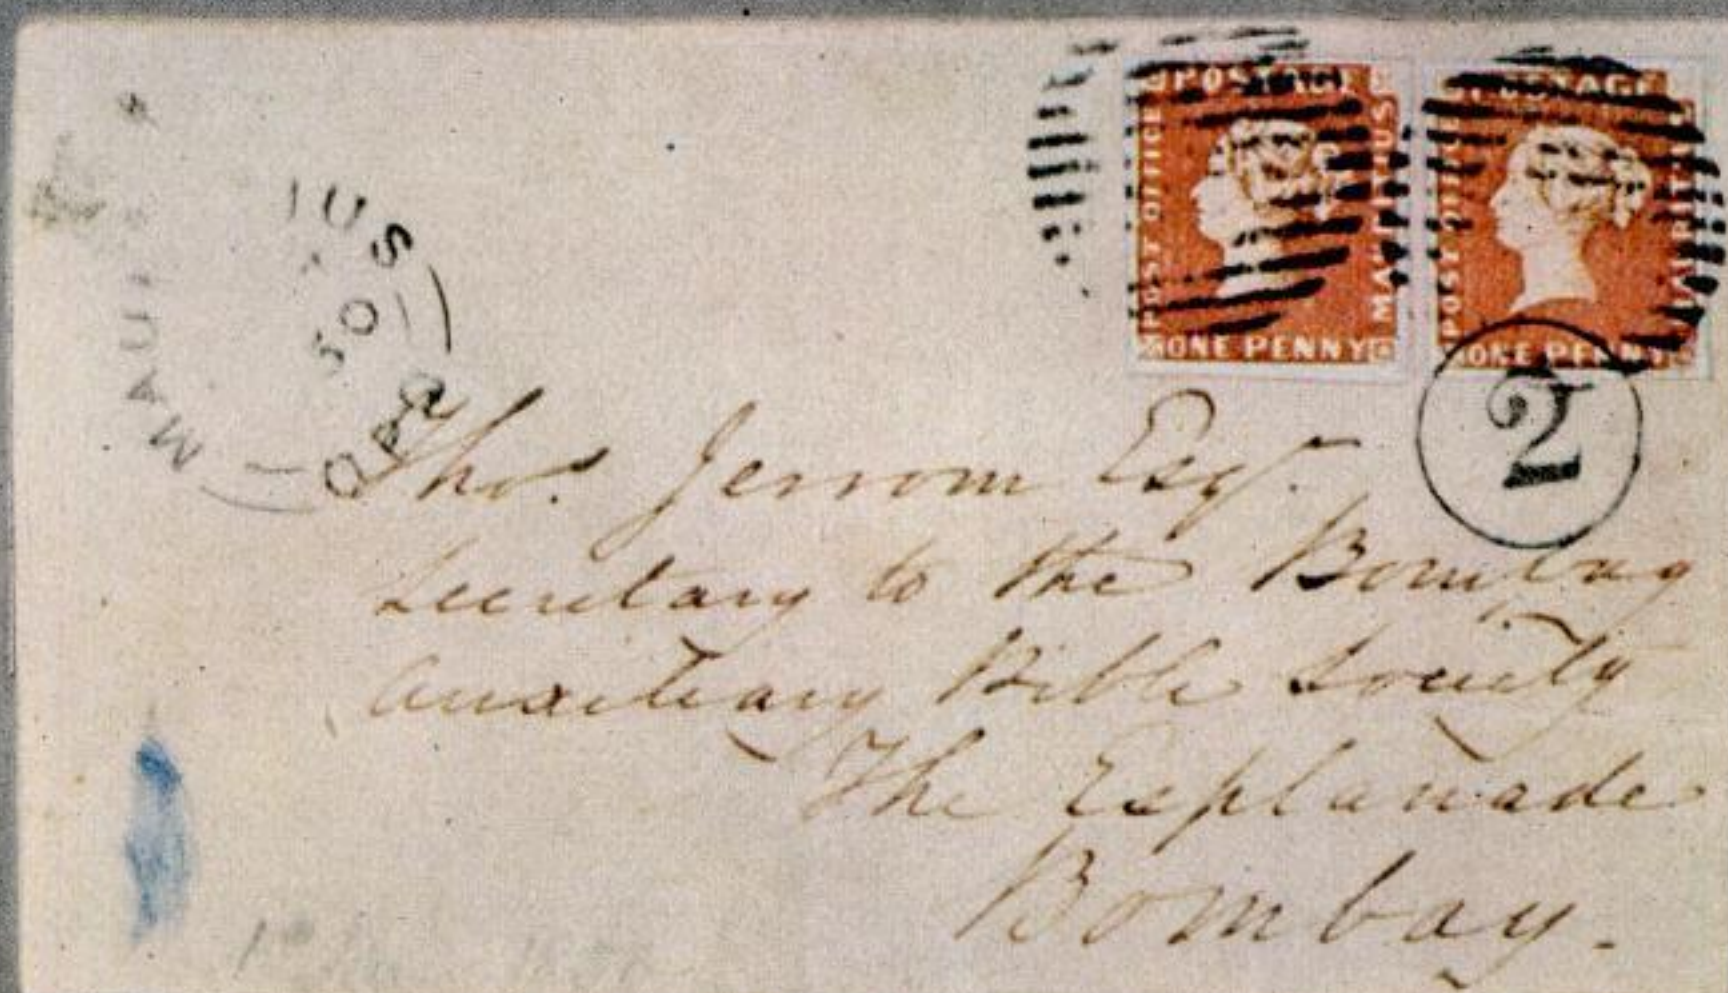 POSTAGE
POST OFFICE
MAURITIUS
ONE PENNY
POSTAGE
POST OFFICE
MAURITIUS
ONE PENNY
2
MAU IUS
PAID
Thos. Jerrom Esqr.
Secretary to the Bombay
Auxiliary Bible Society
The Esplanade
Bombay.